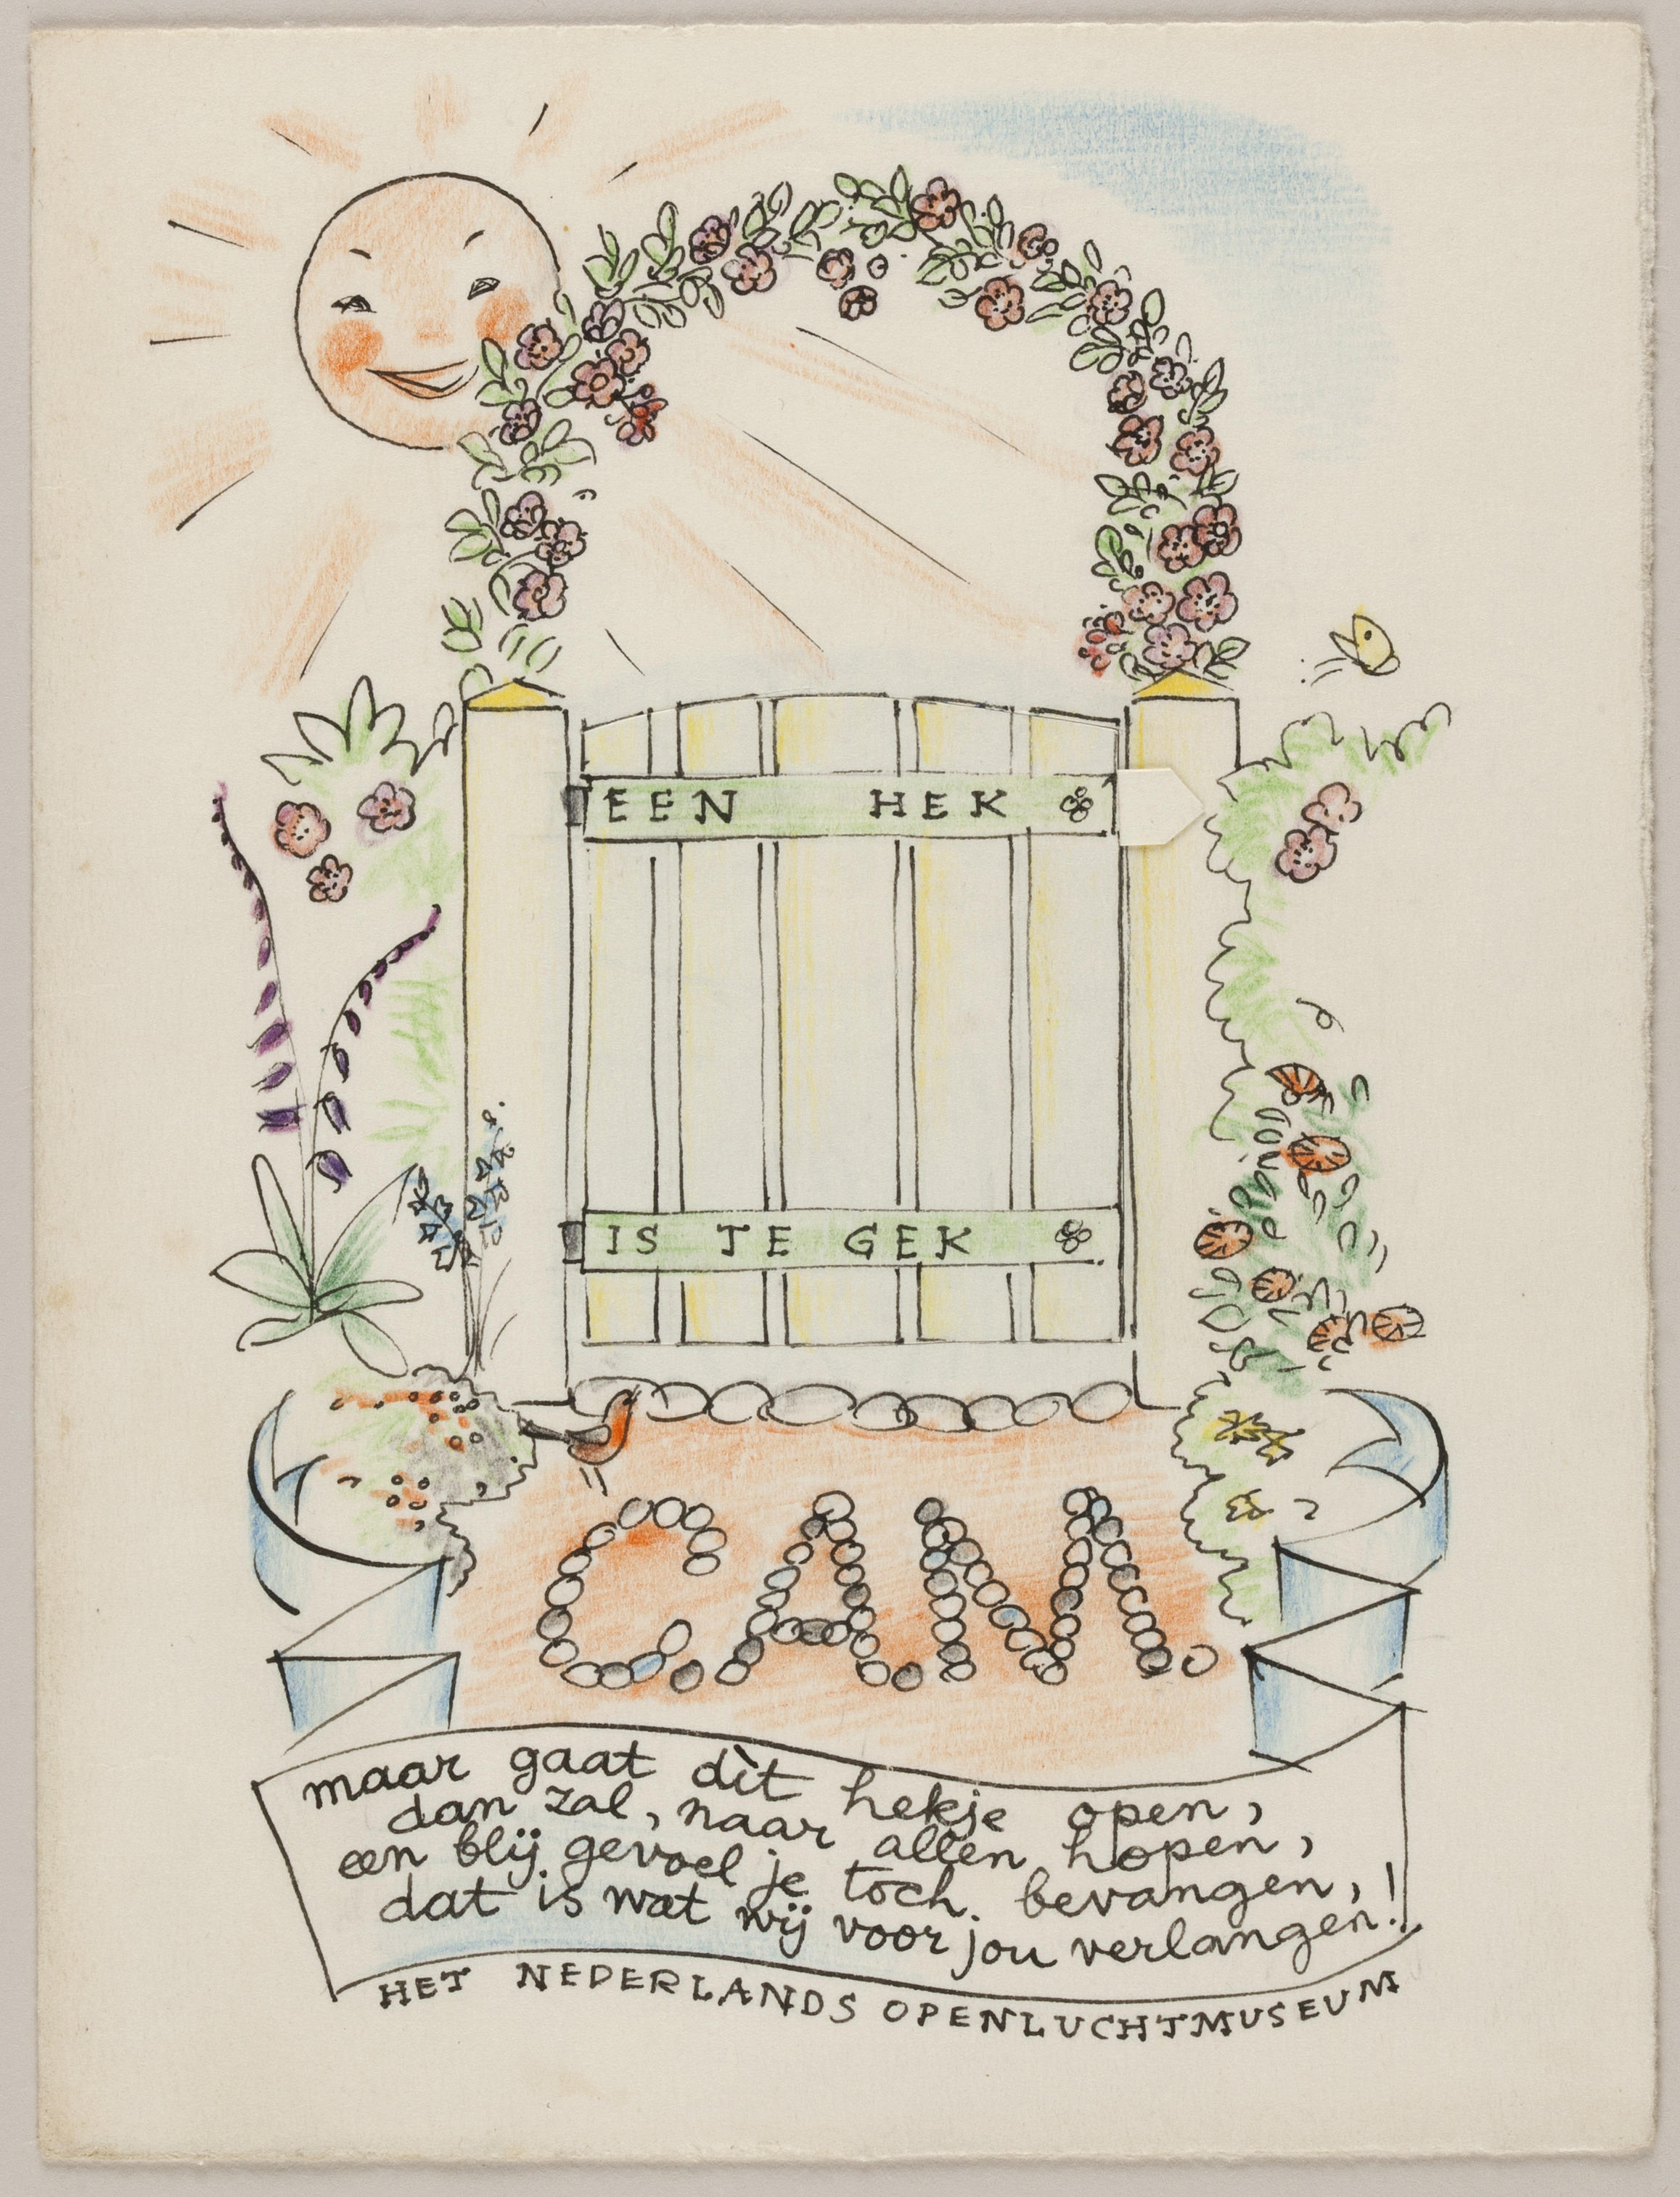 EEN HEK
IS TE GEK
CAM
maar gaat dìt hekje open,
dan zal, naar allen hopen,
een blij gevoel je toch bevangen,
dat is wat wij voor jou verlangen!!
HET NEDERLANDS OPENLUCHTMUSEUM